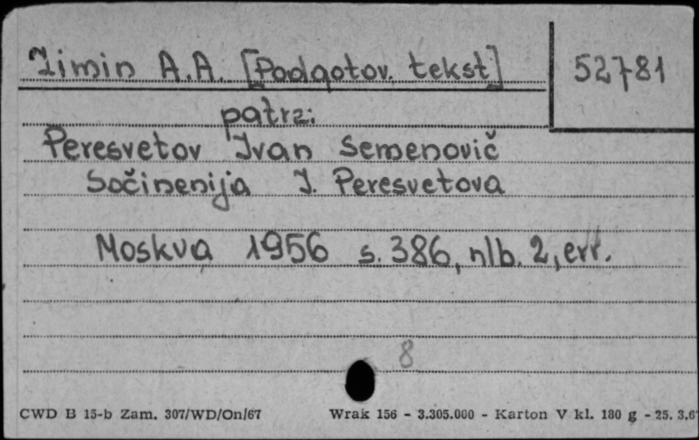 Zimin A.A. [Podgotov. tekst]
52781
patrz:
Peresvetov Ivan Semenovič
Sočinenija I. Peresvetova
Moskva 1956 s. 386, nlb. 2, err.
8
CWD B 15-b Zam. 307/WD/On/67 Wrak 156 - 3.305.000 - Karton V kl. 180 g - 25. 3.6